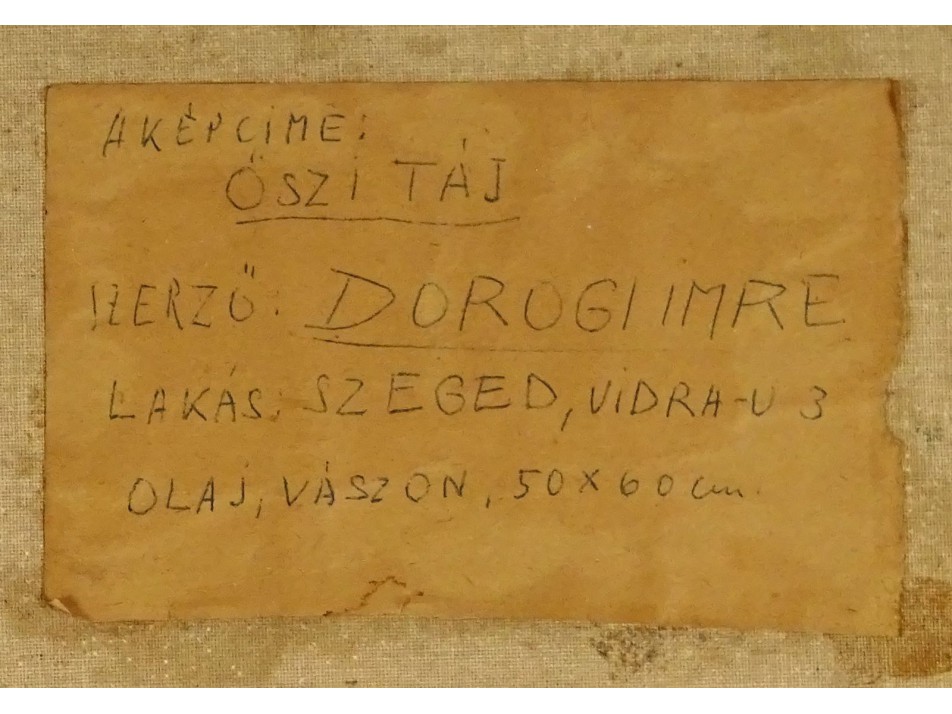 A KÉP CÍME:
ŐSZI TÁJ
SZERZŐ: DOROGI IMRE
LAKÁS: SZEGED, VIDRA-U 3
OLAJ, VÁSZON, 50 X 60 cm.